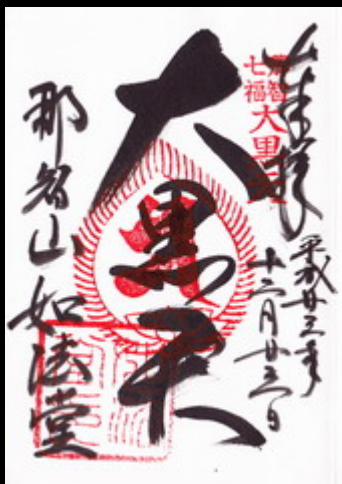 奉拝
那智
七福
大黒天
平成廿三年
十二月廿日
大黒天
那智山如法堂